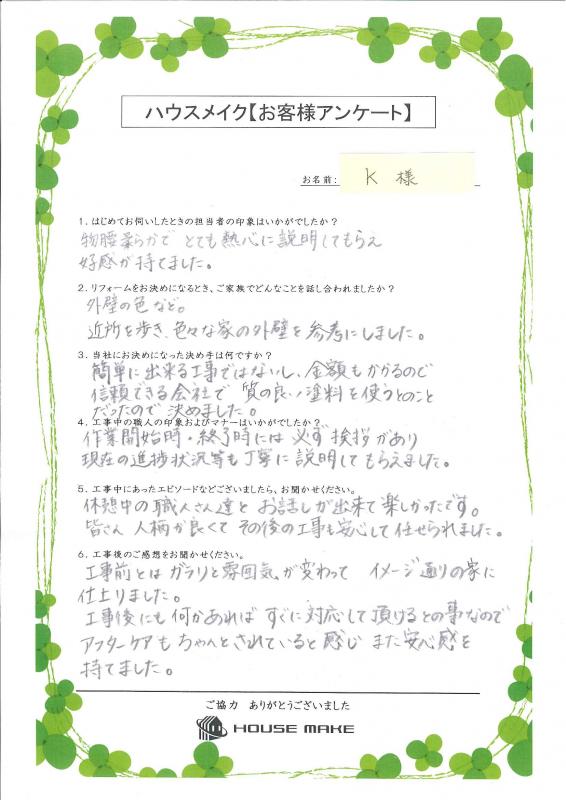 ハウスメイク【お客様アンケート】
お名前: K 様
1. はじめてお伺いしたときの担当者の印象はいかがでしたか?
物腰柔らかで とても熱心に説明してもらえ
好感が持てました。
2. リフォームをお決めになるとき、ご家族でどんなことを話し合われましたか?
外壁の色など。
近所を歩き、色々な家の外壁を参考にしました。
3. 当社にお決めになった決め手は何ですか?
簡単に出来る工事ではないし、金額もかかるので
信頼できる会社で 質の良い塗料を使うとのこと
だったので決めました。
4. 工事中の職人の印象およびマナーはいかがでしたか?
作業開始時・終了時には必ず挨拶があり
現在の進捗状況等も丁寧に説明してもらえました。
5. 工事中にあったエピソードなどございましたら、お聞かせください。
休憩中の職人さん達と お話しが出来て楽しかったです。
皆さん人柄が良くて その後の工事も安心して任せられました。
6. 工事後のご感想をお聞かせください。
工事前とは ガラリと雰囲気が変わって イメージ通りの家に
仕上りました。
工事後にも何かあれば すぐに対応して頂けるとの事なので
アフターケアも ちゃんとされていると感じ また安心感を
持てました。
ご協力 ありがとうございました
HOUSE MAKE